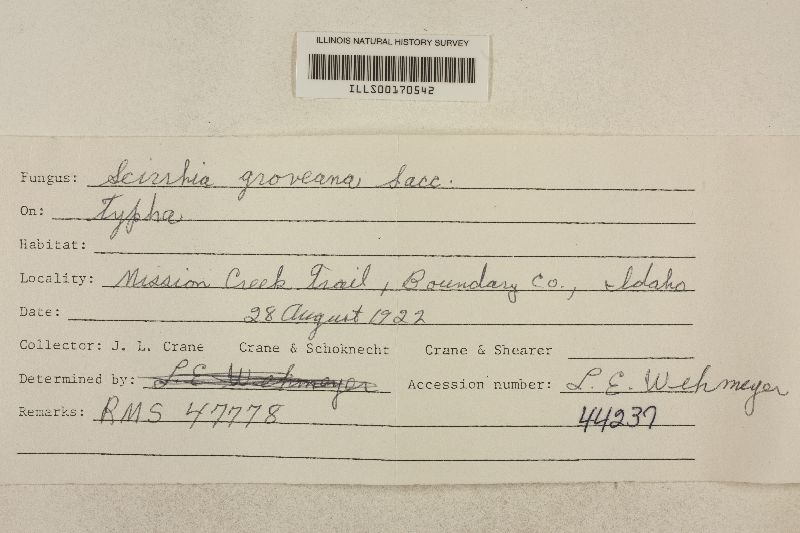 ILLINOIS NATURAL HISTORY SURVEY
ILLS00170542
Fungus: Scirrhia groveana Sacc.
On: Typha
Habitat:
Locality: Mission Creek Trail, Boundary Co., Idaho
Date: 28 August 1922
Collector: J. L. Crane Crane & Schoknecht Crane & Shearer
Determined by: L. E. Wehmeyer Accession number: L. E. Wehmeyer
Remarks: RMS 47778 44237